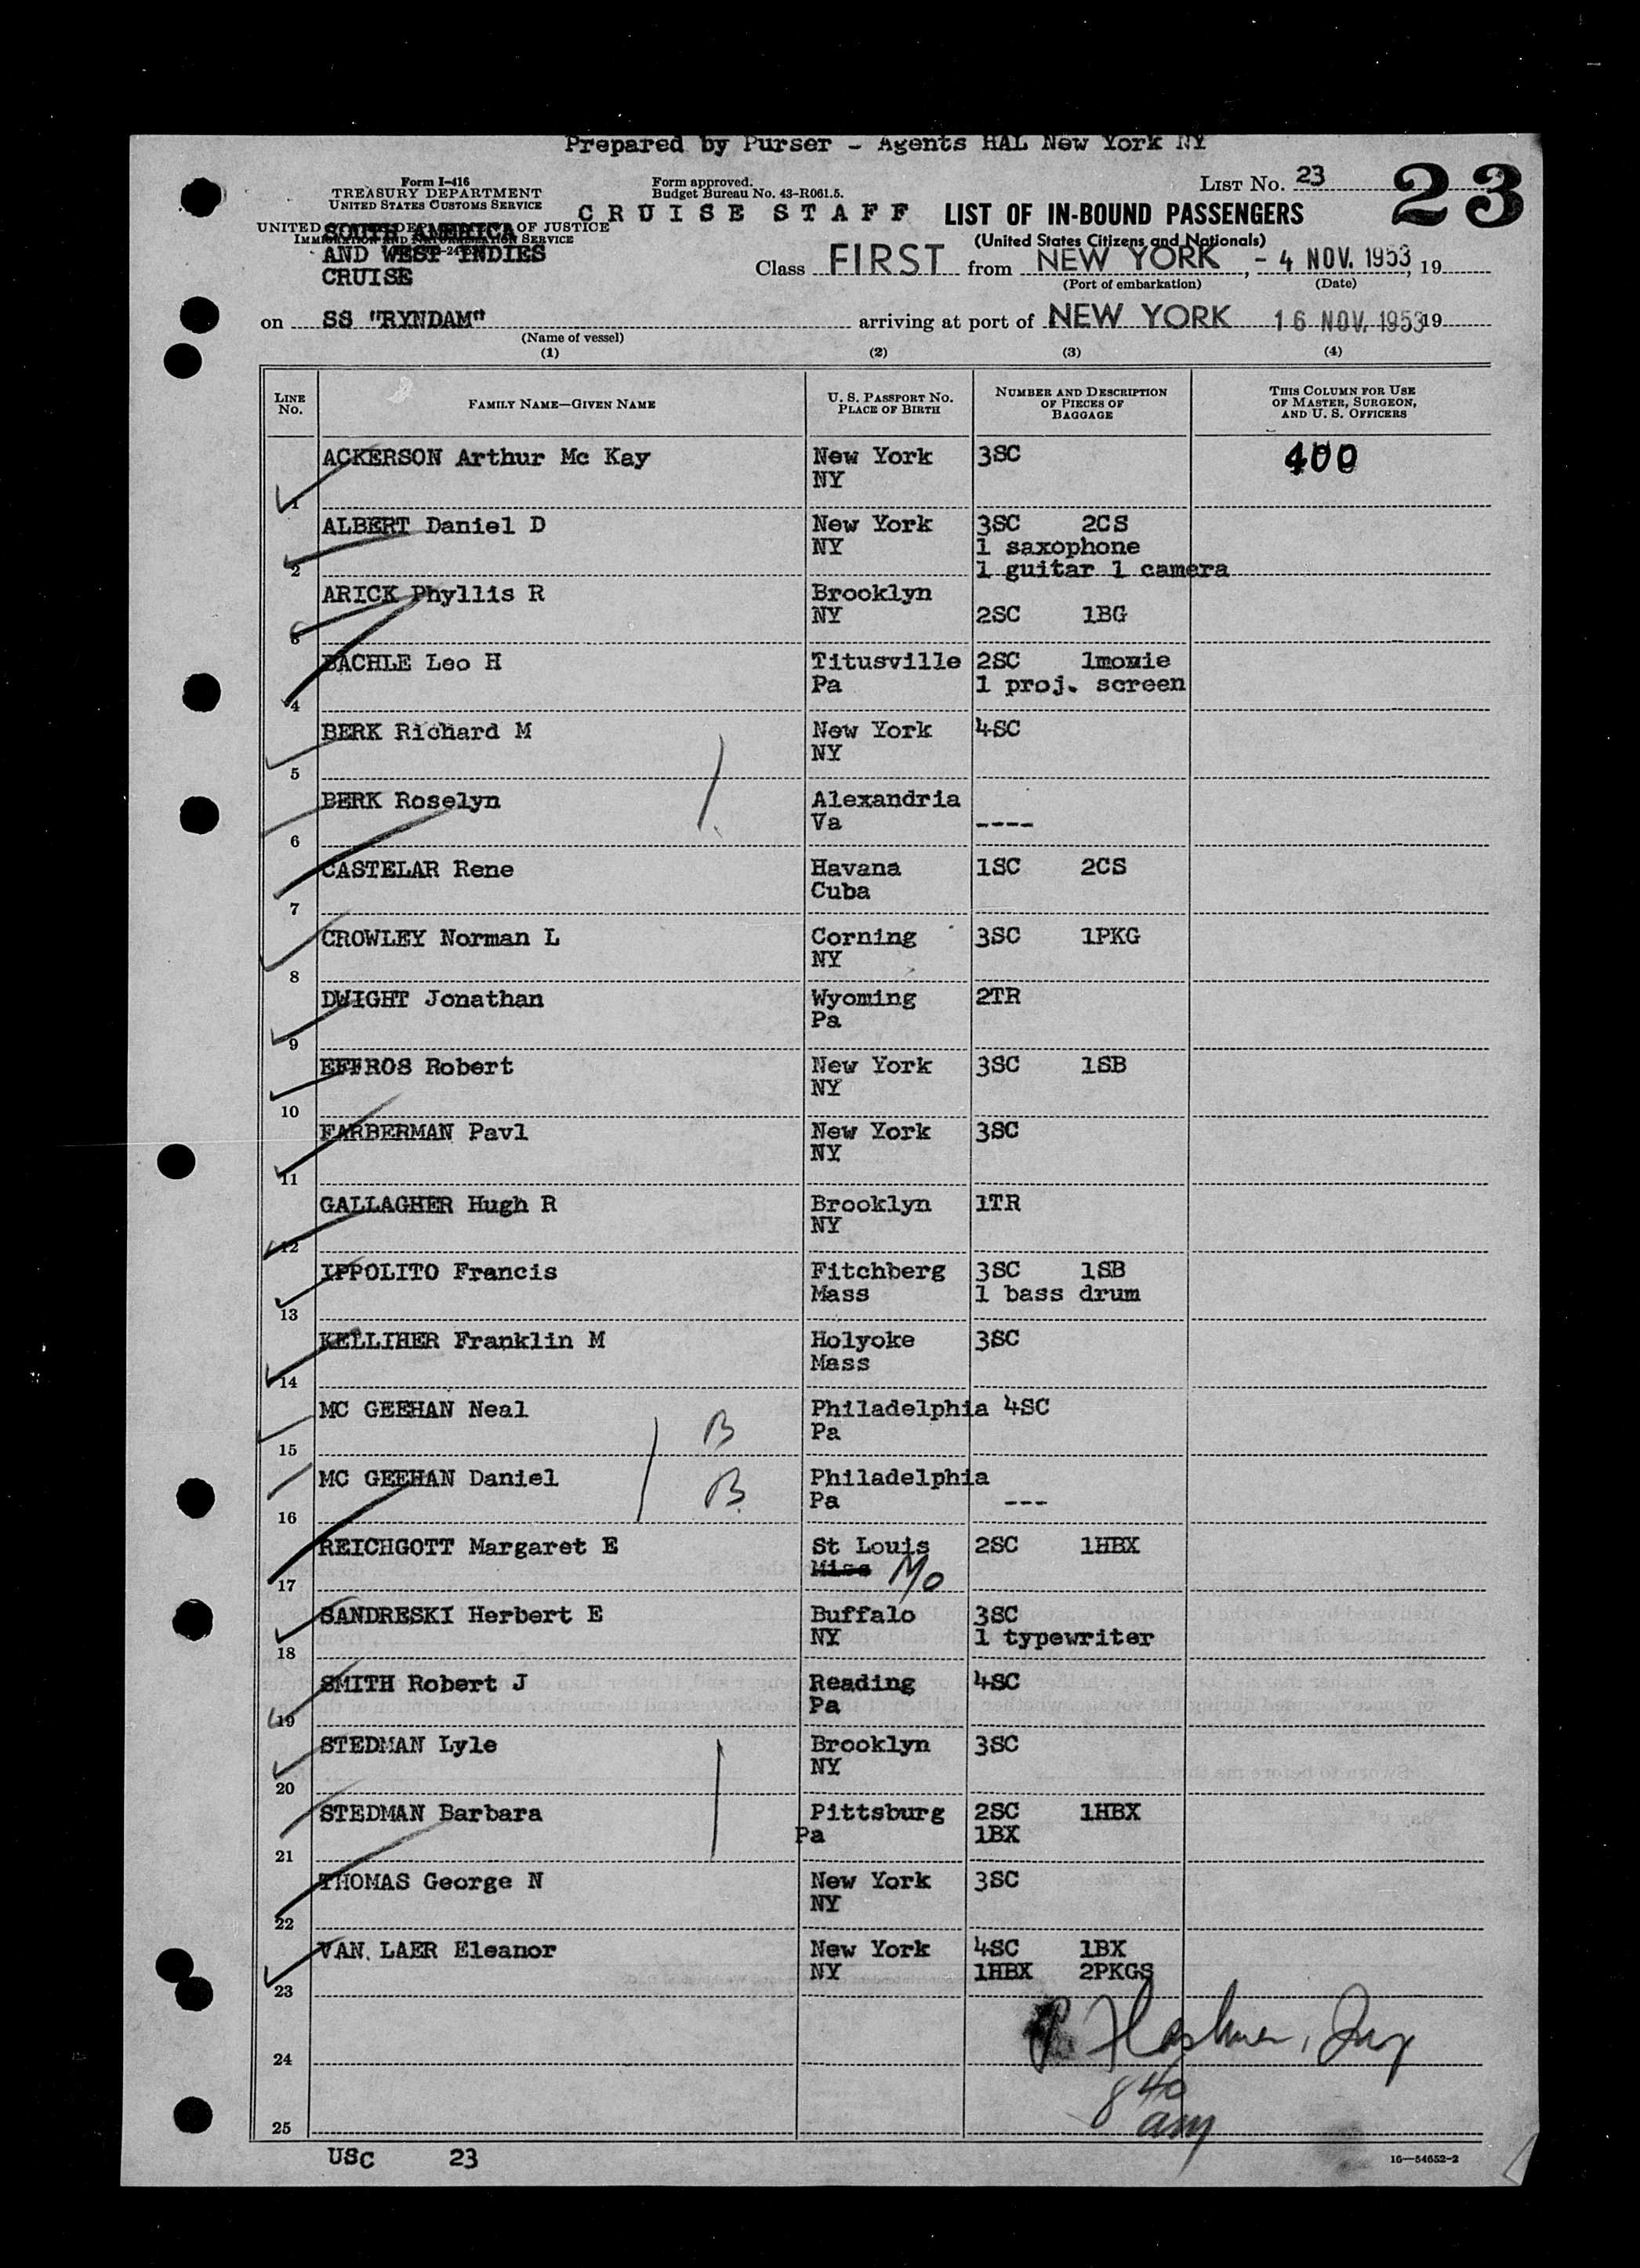 Prepared by Purser - Agents HAL New York NY
Form I-416
TREASURY DEPARTMENT
UNITED STATES CUSTOMS SERVICE
Form approved.
Budget Bureau No. 43-R061.5.
LIST No. 23
23
UNITED STATES DEPARTMENT OF JUSTICE
IMMIGRATION AND NATURALIZATION SERVICE
SOUTH AMERICA
AND WEST INDIES
CRUISE
CRUISE STAFF LIST OF IN-BOUND PASSENGERS
(United States Citizens and Nationals)
Class FIRST from NEW YORK, - 4 NOV. 1953, 19
(Port of embarkation) (Date)
on SS "RYNDAM" arriving at port of NEW YORK 16 NOV. 1953 19
(Name of vessel)
(1) (2) (3) (4)
LINE No. FAMILY NAME—GIVEN NAME U. S. PASSPORT No. PLACE OF BIRTH NUMBER AND DESCRIPTION OF PIECES OF BAGGAGE THIS COLUMN FOR USE OF MASTER, SURGEON, AND U. S. OFFICERS
ACKERSON Arthur Mc Kay New York 3SC 400
NY
1
ALBERT Daniel D New York 3SC 2CS
NY 1 saxophone
2 1 guitar 1 camera
ARICK Phyllis R Brooklyn
NY 2SC 1BG
3
BACHLE Leo H Titusville 2SC 1movie
Pa 1 proj. screen
4
BERK Richard M New York 4SC
NY
5
BERK Roselyn Alexandria
Va ----
6
CASTELAR Rene Havana 1SC 2CS
Cuba
7
CROWLEY Norman L Corning 3SC 1PKG
NY
8
DWIGHT Jonathan Wyoming 2TR
Pa
9
EFFROS Robert New York 3SC 1SB
NY
10
FARBERMAN Pavl New York 3SC
NY
11
GALLAGHER Hugh R Brooklyn 1TR
NY
12
IPPOLITO Francis Fitchberg 3SC 1SB
Mass 1 bass drum
13
KELLIHER Franklin M Holyoke 3SC
Mass
14
MC GEEHAN Neal B Philadelphia 4SC
Pa
15
MC GEEHAN Daniel B Philadelphia
Pa ---
16
REICHGOTT Margaret E St Louis 2SC 1HBX
Miss Mo
17
SANDRESKI Herbert E Buffalo 3SC
NY 1 typewriter
18
SMITH Robert J Reading 4SC
Pa
19
STEDMAN Lyle Brooklyn 3SC
NY
20
STEDMAN Barbara Pittsburg 2SC 1HBX
Pa 1BX
21
THOMAS George N New York 3SC
NY
22
VAN LAER Eleanor New York 4SC 1BX
NY 1HBX 2PKGS
23
24
840
am
25
USC 23
16—54652-2